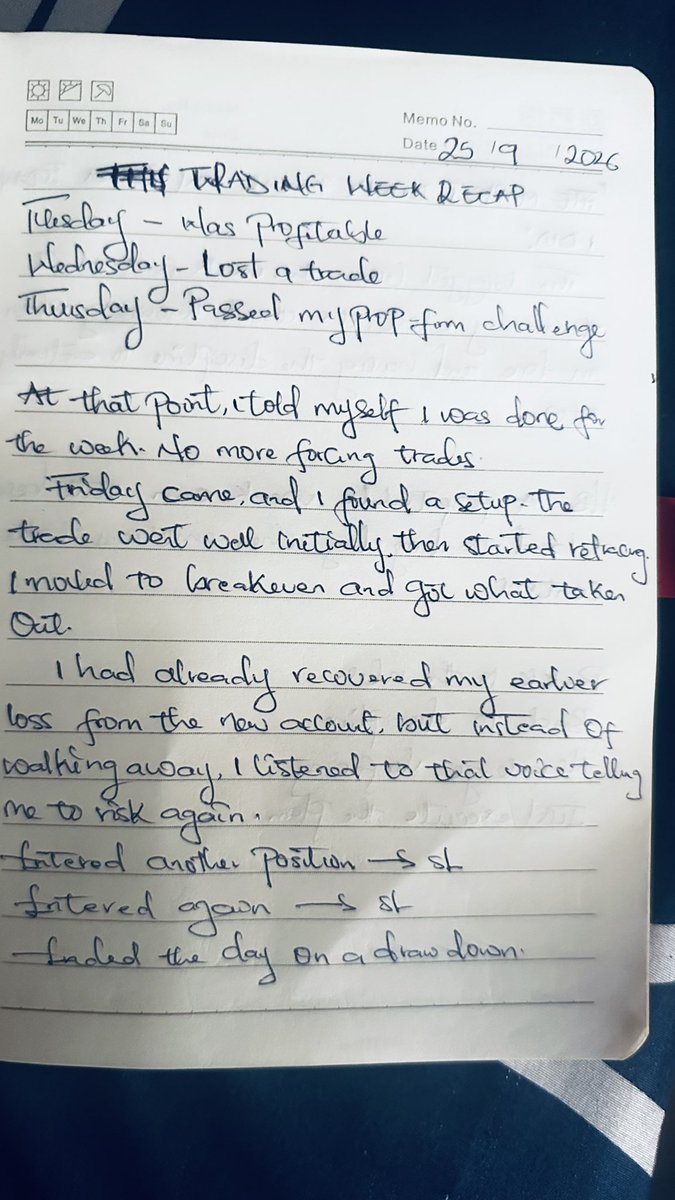 Mo Tu We Th Fr Sa Su
Memo No.
Date 25 / 9 / 2026
TRADING WEEK RECAP
Tuesday - Was Profitable
Wednesday - Lost a trade
Thursday - Passed my prop-firm challenge
At that point, I told myself I was done for
the week. No more forcing trades.
Friday came, and I found a setup. The
trade went well initially, then started retracing.
I moved to breakeven and got what taken
Out.
I had already recovered my earlier
loss from the new account, but instead of
walking away, I listened to that voice telling
me to risk again.
Entered another position → SL
Entered again → SL
Ended the day on a drawdown.